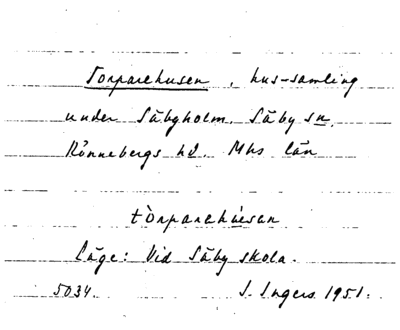 Torparehusen, hus-samling
under Säbyholm. Säby sn,
Rönnebergs hd. Mhs län
tòrparehúesan
Läge: Vid Säby skola.
5034. I. Ingers 1951.